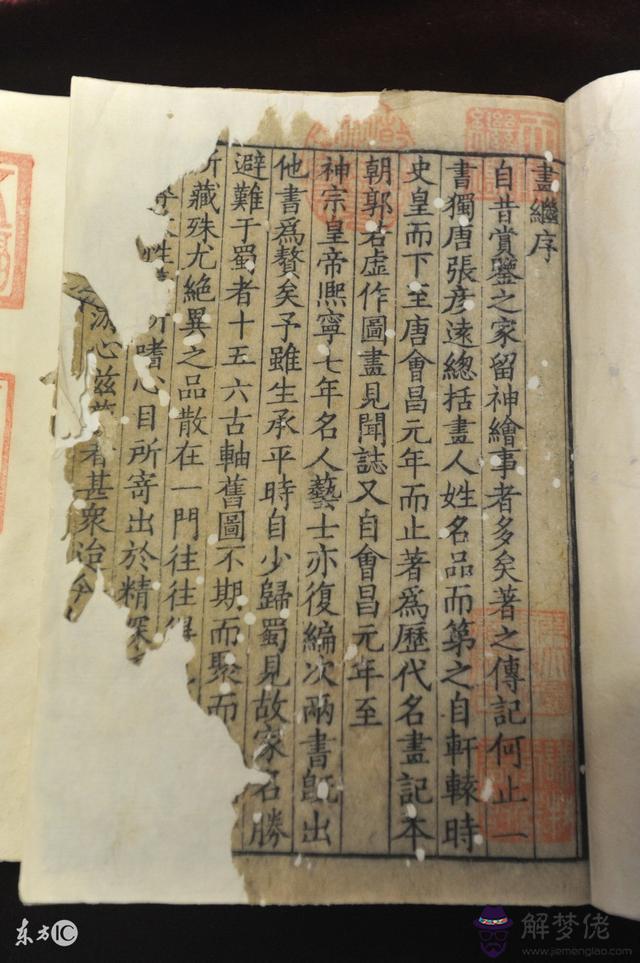 畫繼序
自昔賞鑒之家留神繪事者多矣著之傳記何止一
書獨唐張彥遠總括畫人姓名品而苐之自軒轅時
史皇而下至唐會昌元年而止著爲歷代名畫記本
朝郭若虛作圖畫見聞誌又自會昌元年至
神宗皇帝熙寧七年名人藝士亦復編次兩書旣出
他書爲贅矣予雖生承平時自少歸蜀見故家名勝
避難于蜀者十五六古軸舊圖不期而聚而
所藏殊尤絶異之品散在一門往往得
嗜心目所寄出於精深
心兹 者甚衆冶今
东方IC
解夢佬
www.jiemenglao.com